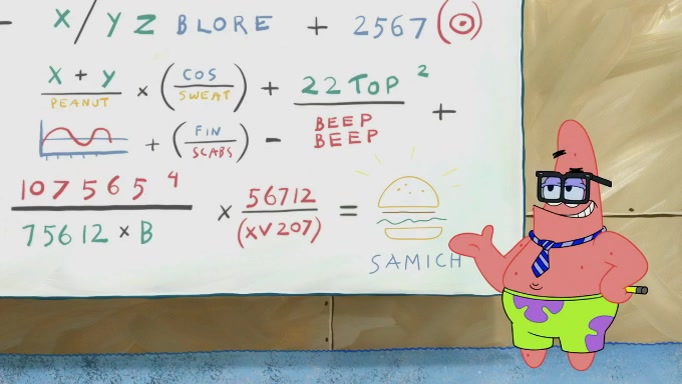 - X/YZ BLORE + 2567
X + Y / PEANUT × (COS / SWEAT) + 22TOP² / BEEP BEEP +
+ (FIN / SCABS) -
107565⁴ / 75612 × B × 56712 / (XV207) =
SAMICH